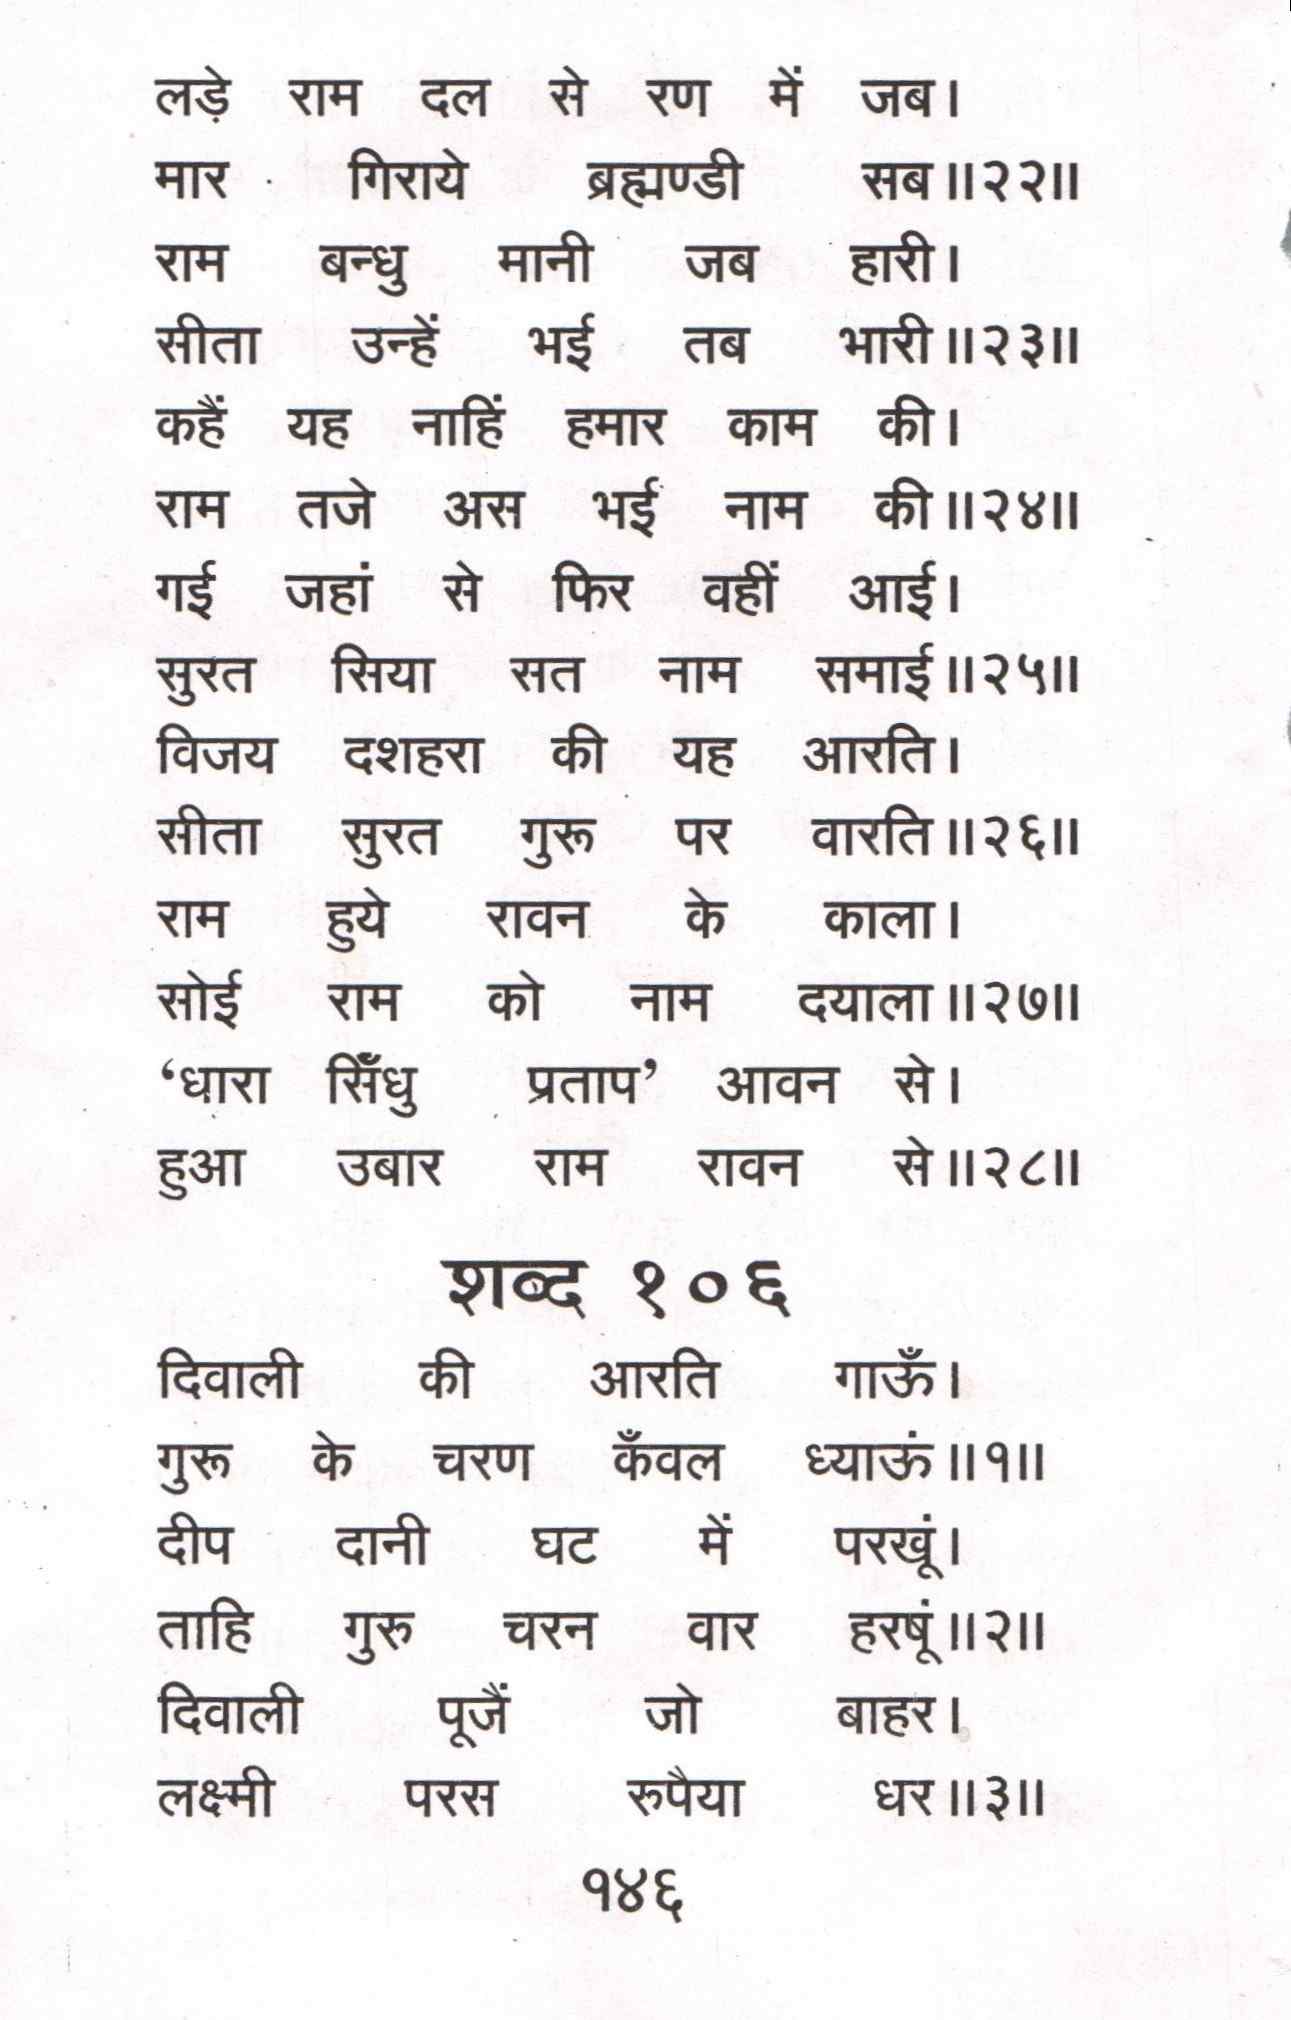 लड़े राम दल से रण में जब।
मार गिराये ब्रह्मण्डी सब॥२२॥
राम बन्धु मानी जब हारी।
सीता उन्हें भई तब भारी॥२३॥
कहैं यह नाहिं हमार काम की।
राम तजे अस भई नाम की॥२४॥
गई जहां से फिर वहीं आई।
सुरत सिया सत नाम समाई॥२५॥
विजय दशहरा की यह आरति।
सीता सुरत गुरू पर वारति॥२६॥
राम हुये रावन के काला।
सोई राम को नाम दयाला॥२७॥
‘धारा सिँधु प्रताप’ आवन से।
हुआ उबार राम रावन से॥२८॥
शब्द १०६
दिवाली की आरति गाऊँ।
गुरू के चरण कँवल ध्याऊं॥१॥
दीप दानी घट में परखूं।
ताहि गुरु चरन वार हरषूं॥२॥
दिवाली पूजैं जो बाहर।
लक्ष्मी परस रुपैया धर॥३॥
१४६